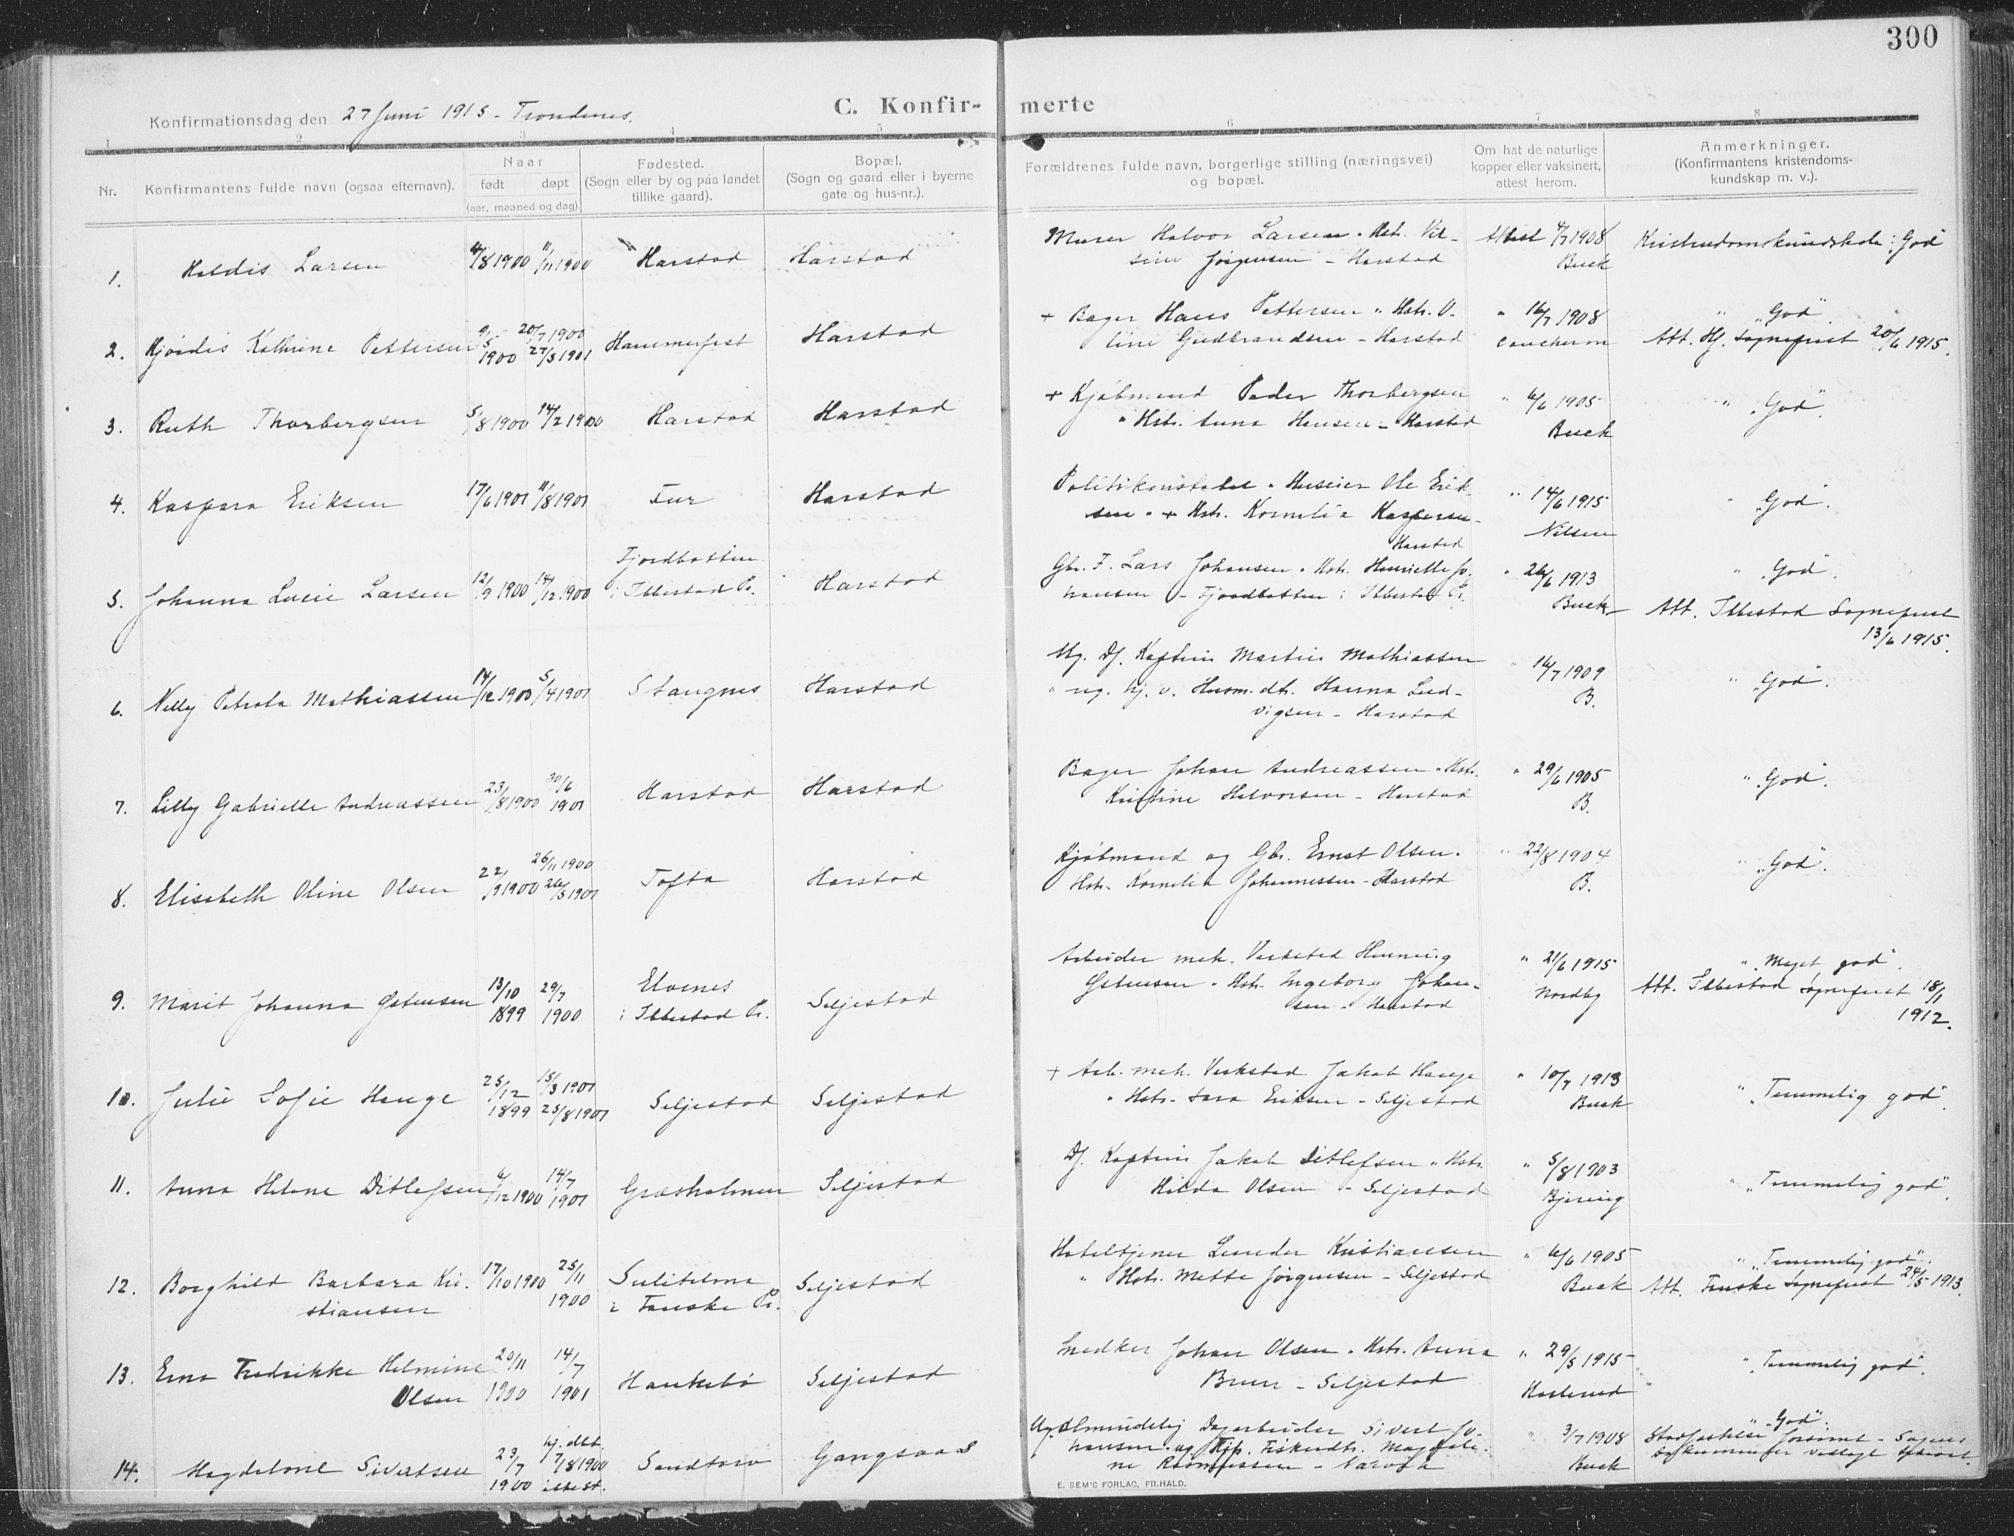 300
Konfirmationsdag den 27 Juni 1915 - Trondenes.
C. Konfir- merte
1 2 3 4 5 6 7 8
Nr.
Konfirmantens fulde navn (ogsaa efternavn).
Naar
født døpt
(aar, maaned og dag).
Fødested.
(Sogn eller by og paa landet
tillike gaard).
Bopæl.
(Sogn og gaard eller i byerne
gate og hus-nr.).
Forældrenes fulde navn, borgerlige stilling (næringsvei)
og bopæl.
Om hat de naturlige
kopper eller vaksinert,
attest herom.
Anmerkninger.
(Konfirmantens kristendoms-
kundskap m. v.).
1. Haldis Larsen 4/8 1900 11/11 1900 Harstad Harstad
Murer Halvor Larsen . Hstr. Vil-
sine Jørgensen - Harstad
Attest 4/7 1908
Buck
Kristendomskundskab: God
2. Hjørdis Kathrine Pettersen 9/5 1900 20/7 1900 27/3 1901 Hammerfest Harstad
+ Bager Hans Pettersen " Hstr. O-
line Gudbrandsen - Harstad
" 16/7 1908
Caucheron
" "God".
Att. Hf. Sogneprest 20/6 1915.
3. Ruth Thorbergsen 5/8 1900 14/2 1900 Harstad Harstad
+ Kjøbmand Peder Thorbergsen
" Hstr. Anna Hansen - Harstad
" 6/6 1905
Buck
" "God".
4. Kaspara Eriksen 17/6 1901 11/8 1901 Fur Harstad
Politikonstabel . Huseier Ole Erik-
sen . + Hstr. Kornelia Kaspersen -
Harstad
" 14/6 1915
Nilsen
" "God".
5. Johanna Lucie Larsen 12/9 1900 14/12 1900
Fjordbotten
i Ibbestad Pr.
Harstad
Gbr. F. Lars Johansen . Hstr. Henriette Jo-
hansen - Fjordbotten i Ibbestad Pr.
" 26/6 1913
Buck
" "God".
Att. Ibbestad Sogneprest
13/6 1915.
6. Nelly Petrola Mathiassen 14/12 1900 5/4 1901 Stangnes Harstad
Ug. Df. Kaptein Martin Mathiassen
" ug. hj. v. Husm.dtr. Hanna Lud-
vigsen - Harstad
" 16/7 1909
B.
" "God".
7. Lilly Gabrielle Andreassen 23/8 1900 30/6 1901 Harstad Harstad
Bager Johan Andreassen . Hstr.
Kristine Halvorsen - Harstad
" 29/6 1905
B.
" "God".
8. Elisabeth Oline Olsen 22/9 1900 26/11 1900 26/5 1901 Tofta Harstad
Kjøbmand og Gbr. Ernst Olsen .
Hstr. Kornelia Johannessen - Harstad
" 22/8 1904
B.
" "God".
9. Marit Johanna Østensen 13/10 1899 29/7 1900
Elvenes
i Ibbestad Pr.
Seljestad
Arbeider mek. Verksted Henning
Østensen . Hstr. Ingeborg Johan-
sen - Harstad
" 21/6 1915
Nordby
" "Meget god".
Att. Ibbestad Sogneprest 18/1
1912.
10. Julie Sofie Hauge 25/12 1899 15/3 1901 25/8 1901 Seljestad Seljestad
+ Arb. mek. Verksted Jakob Hauge
" Hstr. Sara Eriksen - Seljestad
" 10/7 1913
Buck
" "Temmelig god".
11. Anna Helene Ditlefsen 6/12 1900 14/7 1901 Græsholmen Seljestad
Df. Kaptein Jakob Ditlefsen " Hstr.
Hilda Olsen - Seljestad
" 5/8 1903
Bjering
" "Temmelig god".
12. Borghild Barbara Kri-
stiansen
17/10 1900 25/11 1900
Sulitelma
i Fauske Pr.
Seljestad
Hoteltjener Kristiansen
" Hstr. Mette Jørgensen - Seljestad
" 6/6 1905
Buck
" "Temmelig god".
Att. Fauske Sogneprest 24/5 1913.
13. Erna Fredrikke Helmine
Olsen
20/11 1900 14/7 1901 Haukebø Seljestad
Snedker Johan Olsen . Hstr. Anna
Bruun - Seljestad
" 29/5 1915
" "Temmelig god".
14. Magdelone Sivertsen 23/7 1900
hj. dbt.
17/8 1900
Sandtorv Gangsaas
Ug. Almindelig Dagarbeider Sivert Jo-
hansen . ug. Pip. Fiskerdtr. Magdale-
ne Rasmussen - Narvik
" 3/7 1908
Buck
" "God".
E. SEM'S FORLAG, FR.HALD.